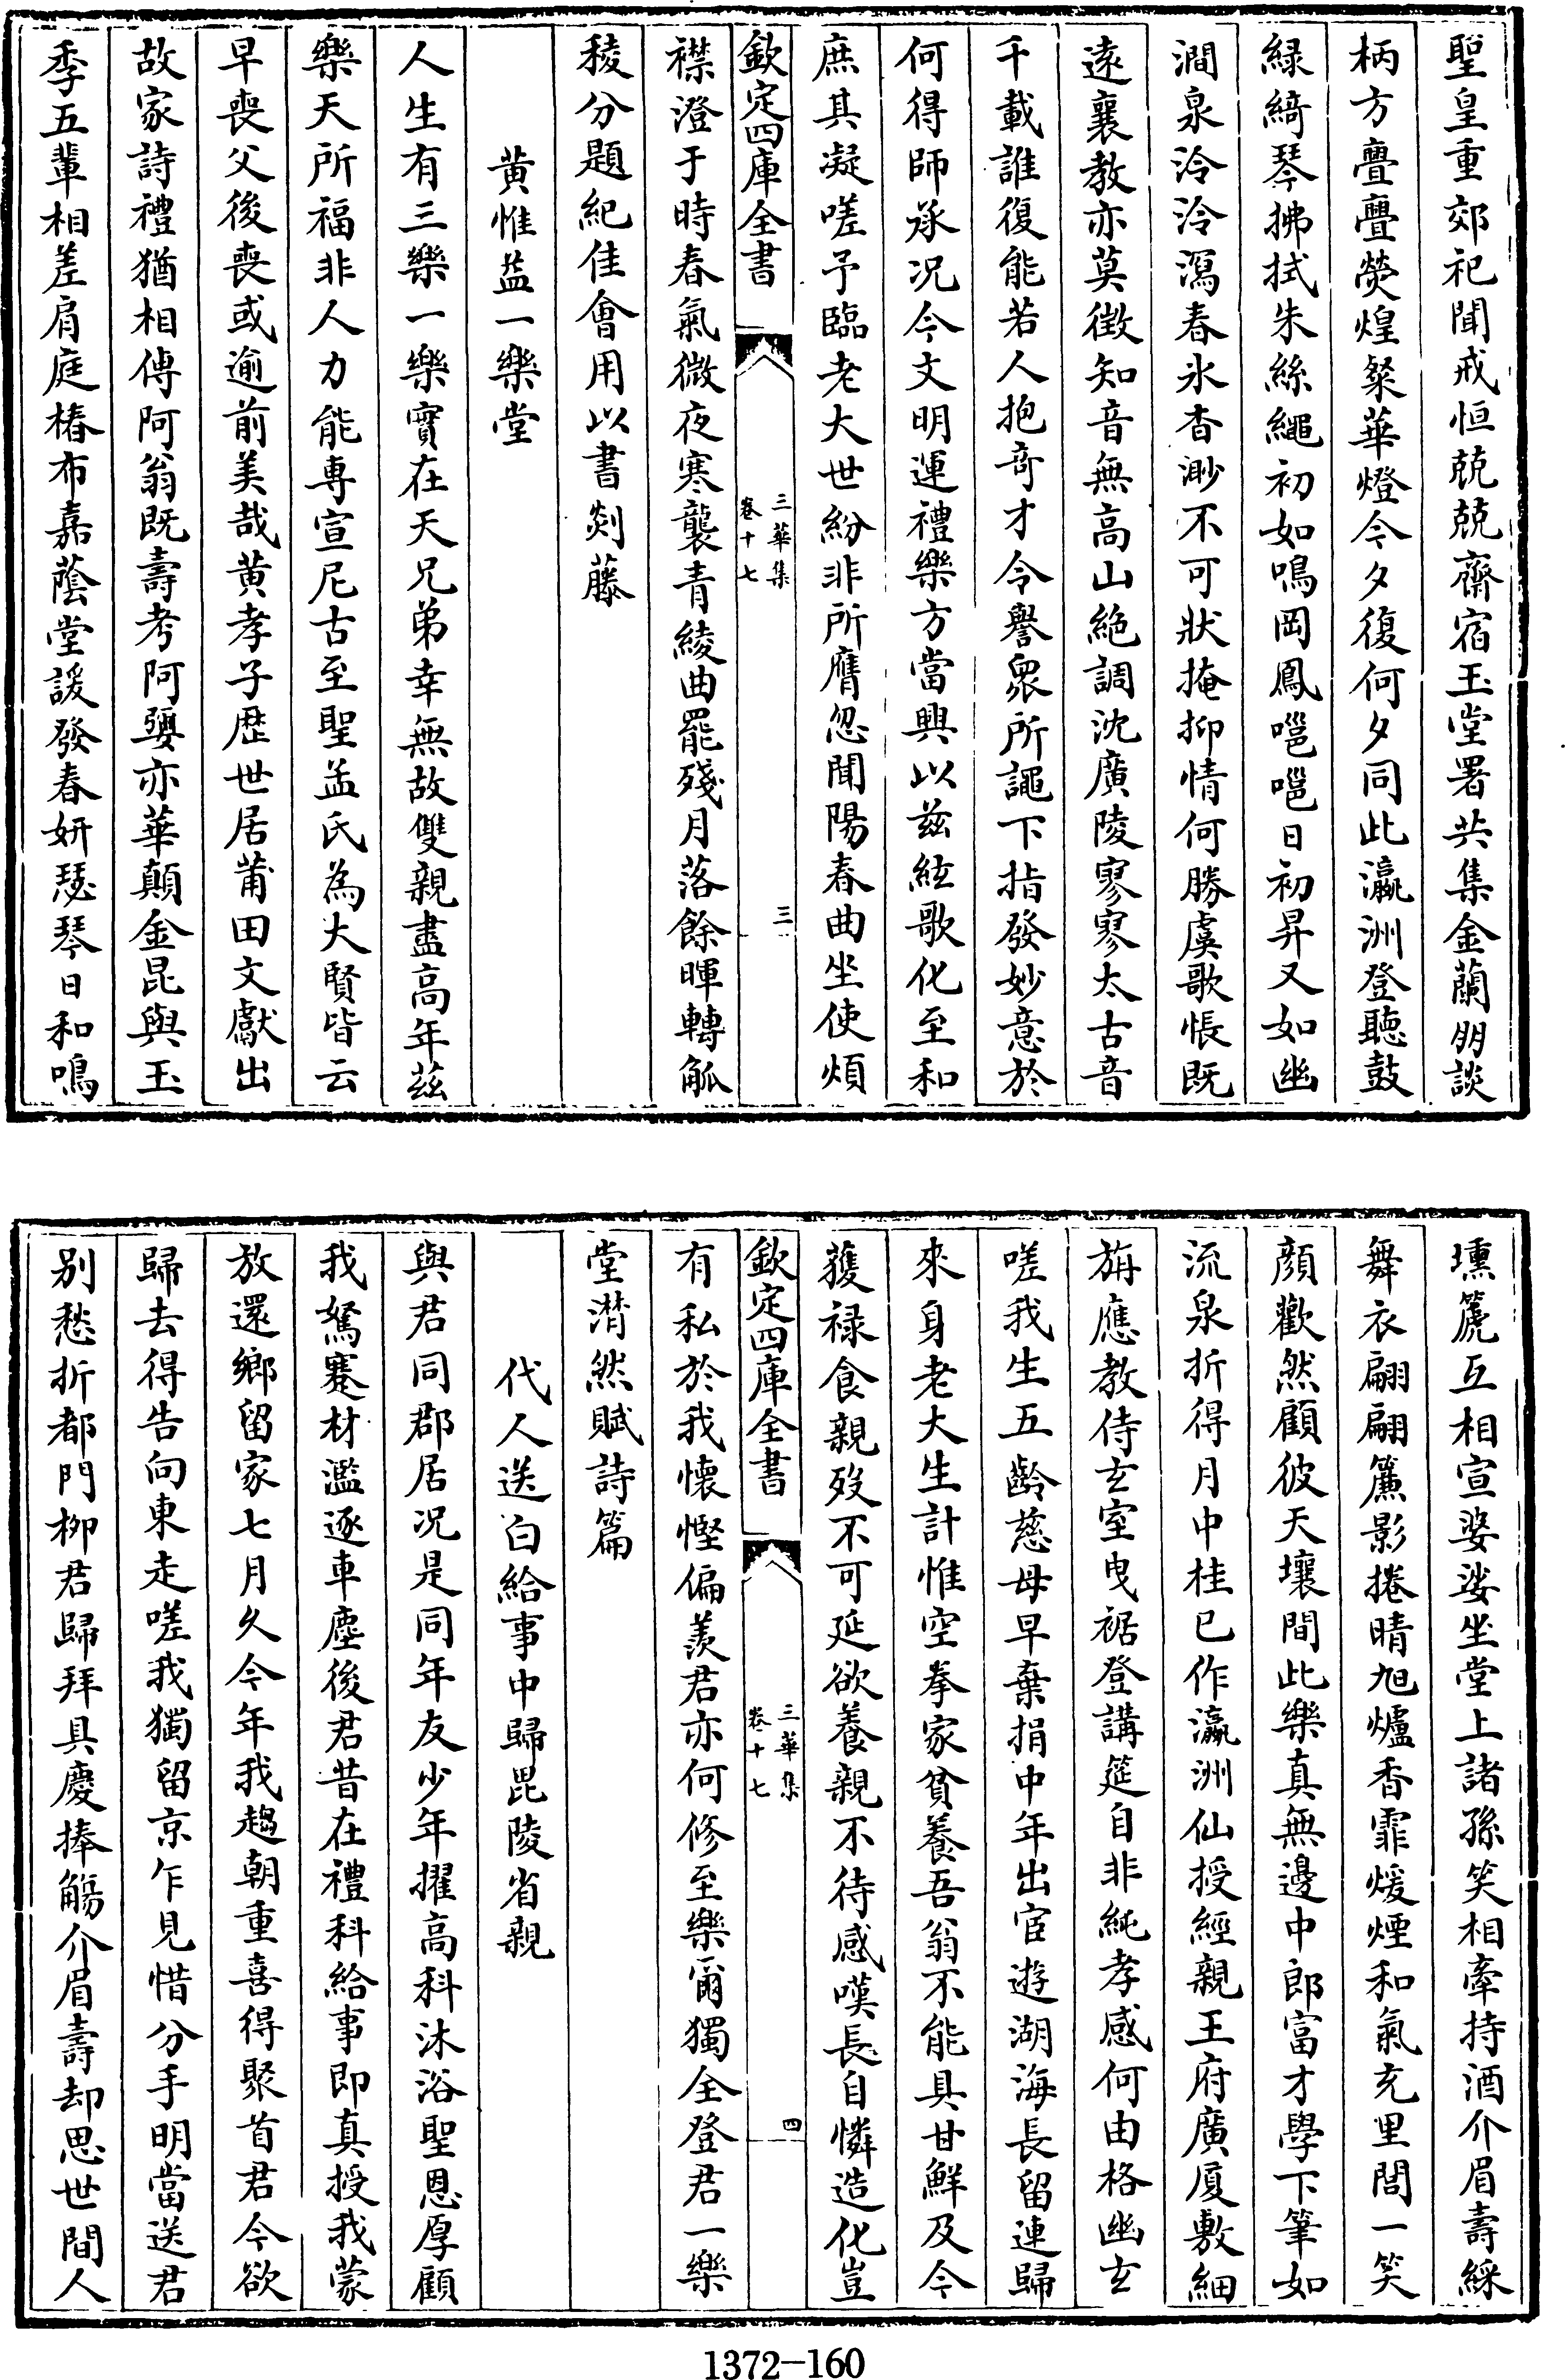 聖皇重郊祀聞戒恒兢兢齋宿玉堂署共集金蘭朋談
柄方亹亹熒煌粲華燈今夕復何夕同此瀛洲登聽鼓
緑綺琴拂拭朱絲繩初如鳴岡鳳嗈嗈日初昇又如幽
澗泉泠泠瀉春氷杳渺不可狀掩抑情何勝虞歌悵既
遠襄教亦莫徴知音無高山絶調沈廣陵寥寥太古音
千載誰復能若人抱竒才令譽衆所譝下指發妙意於
何得師承况今文明運禮樂方當興以兹絃歌化至和
庶其凝嗟予臨老大世紛非所膺忽聞陽春曲坐使煩
欽定四庫全書
三華集
卷十七
三
襟澄于時春氣微夜寒襲青綾曲罷殘月落餘暉轉觚
稜分題紀佳會用以書剡藤
黄惟益一樂堂
人生有三樂一樂實在天兄弟幸無故雙親盡高年兹
樂天所福非人力能專宣尼古至聖孟氏為大賢皆云
早喪父後喪或逾前美哉黄孝子歴世居莆田文獻出
故家詩禮猶相傳阿翁既壽考阿㜲亦華顛金昆與玉
季五輩相差肩庭椿布嘉蔭堂諼發春妍瑟琴日和鳴
壎篪互相宣婆娑坐堂上諸孫笑相牽持酒介眉壽綵
舞衣翩翩簾影捲晴旭爐香霏煖煙和氣充里閭一笑
顔歡然顧彼天壤間此樂真無邊中郎富才學下筆如
流泉折得月中桂已作瀛洲仙授經親王府廣厦敷細
旃應教侍玄室曳裾登講筵自非純孝感何由格幽玄
嗟我生五齡慈母早棄捐中年出宦遊湖海長留連歸
來身老大生計惟空拳家貧養吾翁不能具甘鮮及今
䕶禄食親歿不可延欲養親不待感嘆長自憐造化豈
欽定四庫全書
三華集
卷十七
四
有私於我懷慳偏羨君亦何修至樂爾獨全登君一樂
堂潸然賦詩篇
代人送白給事中歸毘陵省親
與君同郡居况是同年友少年擢高科沐浴聖恩厚顧
我駑蹇材濫逐車塵後君昔在禮科給事即真授我蒙
放還鄉留家七月久今年我趨朝重喜得聚首君今欲
歸去得告向東走嗟我獨留京乍見惜分手明當送君
别愁折都門栁君歸拜具慶捧觴介眉壽却思世間人
1372-160